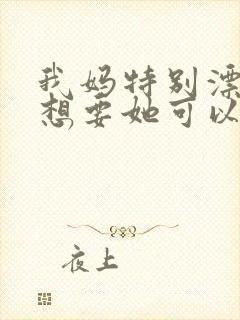 我妈特别漂
想要她可以
夜上